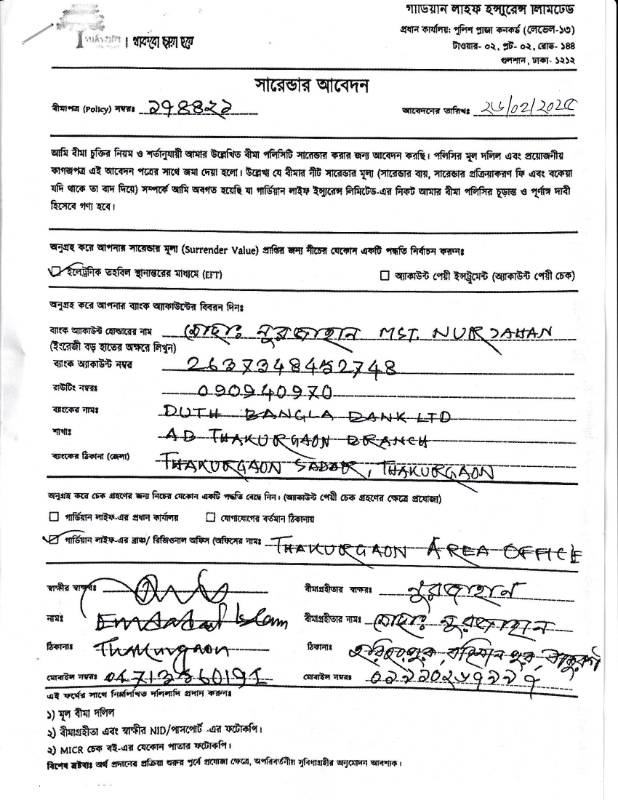 গার্ডিয়ান লাইফ ইন্স্যুরেন্স লিমিটেড
প্রধান কার্যালয়: পুলিশ প্লাজা কনকর্ড (লেভেল-১৩)
থাকবো ছায়া হয়ে
টাওয়ার- ০২, প্লট- ০২, রোড- ১৪৪
গুলশান, ঢাকা- ১২১২
সারেন্ডার আবেদন
বীমাপত্র (Policy) নম্বরঃ ২৭৪৪২২ আবেদনের তারিখঃ
আমি বীমা চুক্তির নিয়ম ও শর্তানুযায়ী আমার উল্লেখিত বীমা পলিসিটি সারেন্ডার করার জন্য আবেদন করছি। পলিসির মূল দলিল এবং প্রয়োজনীয়
কাগজপত্র এই আবেদন পত্রের সাথে জমা দেয়া হলো। উল্লেখ্য যে বীমার নীট সারেন্ডার মূল্য (সারেন্ডার ব্যয়, সারেন্ডার প্রক্রিয়াকরণ ফি এবং বকেয়া
যদি থাকে তা বাদ দিয়ে) সম্পর্কে আমি অবগত হয়েছি যা গার্ডিয়ান লাইফ ইন্স্যুরেন্স লিমিটেড-এর নিকট আমার বীমা পলিসির চূড়ান্ত ও পূর্ণাঙ্গ দাবী
হিসেবে গণ্য হবে।
অনুগ্রহ করে আপনার সারেন্ডার মূল্য (Surrender Value) প্রাপ্তির জন্য নীচের যেকোন একটি পদ্ধতি নির্বাচন করুনঃ
ইলেট্রনিক তহবিল স্থানান্তরের মাধ্যমে (EFT) অ্যাকাউন্ট পেয়ী ইন্সট্রুমেন্ট (অ্যাকাউন্ট পেয়ী চেক)
অনুগ্রহ করে আপনার ব্যাংক অ্যাকাউন্টের বিবরন দিনঃ
ব্যাংক অ্যাকাউন্ট হোল্ডারের নাম মোছাঃ নুরজাহান MST. NURJAHAN
(ইংরেজী বড় হাতের অক্ষরে লিখুন)
ব্যাংক অ্যাকাউন্ট নম্বর 2637348452748
রাউটিং নম্বরঃ 090940970
ব্যাংকের নামঃ DUTH BANGLA BANK LTD
শাখাঃ AB THAKURGAON BRANCH
ব্যাংকের ঠিকানা (জেলা) THAKURGAON SADAR, THAKURGAON
অনুগ্রহ করে চেক গ্রহণের জন্য নিচের যেকোন একটি পদ্ধতি বেছে নিন। (অ্যাকাউন্ট পেয়ী চেক গ্রহণের ক্ষেত্রে প্রযোজ্য)
গার্ডিয়ান লাইফ-এর প্রধান কার্যালয় যোগাযোগের বর্তমান ঠিকানায়
গার্ডিয়ান লাইফ-এর ব্রাঞ্চ/ রিজিওনাল অফিস (অফিসের নামঃ THAKURGAON AREA OFFICE
স্বাক্ষীর স্বাক্ষরঃ বীমাগ্রহীতার স্বাক্ষরঃ নুরজাহান
নামঃ Emdadul Islam বীমাগ্রহীতার নামঃ মোছাঃ নুরজাহান
ঠিকানাঃ Thakurgaon ঠিকানাঃ
মোবাইল নম্বরঃ মোবাইল নম্বরঃ
এই ফর্মের সাথে নিম্নলিখিত দলিলাদি প্রদান করুনঃ
১) মূল বীমা দলিল
২) বীমাগ্রহীতা এবং স্বাক্ষীর NID/পাসপোর্ট -এর ফটোকপি।
২) MICR চেক বই-এর যেকোন পাতার ফটোকপি।
বিশেষ দ্রষ্টব্যঃ অর্থ প্রদানের প্রক্রিয়া শুরুর পূর্বে প্রযোজ্য ক্ষেত্রে, অপরিবর্তনীয় সুবিধাগ্রহীর অনুমোদন আবশ্যক।